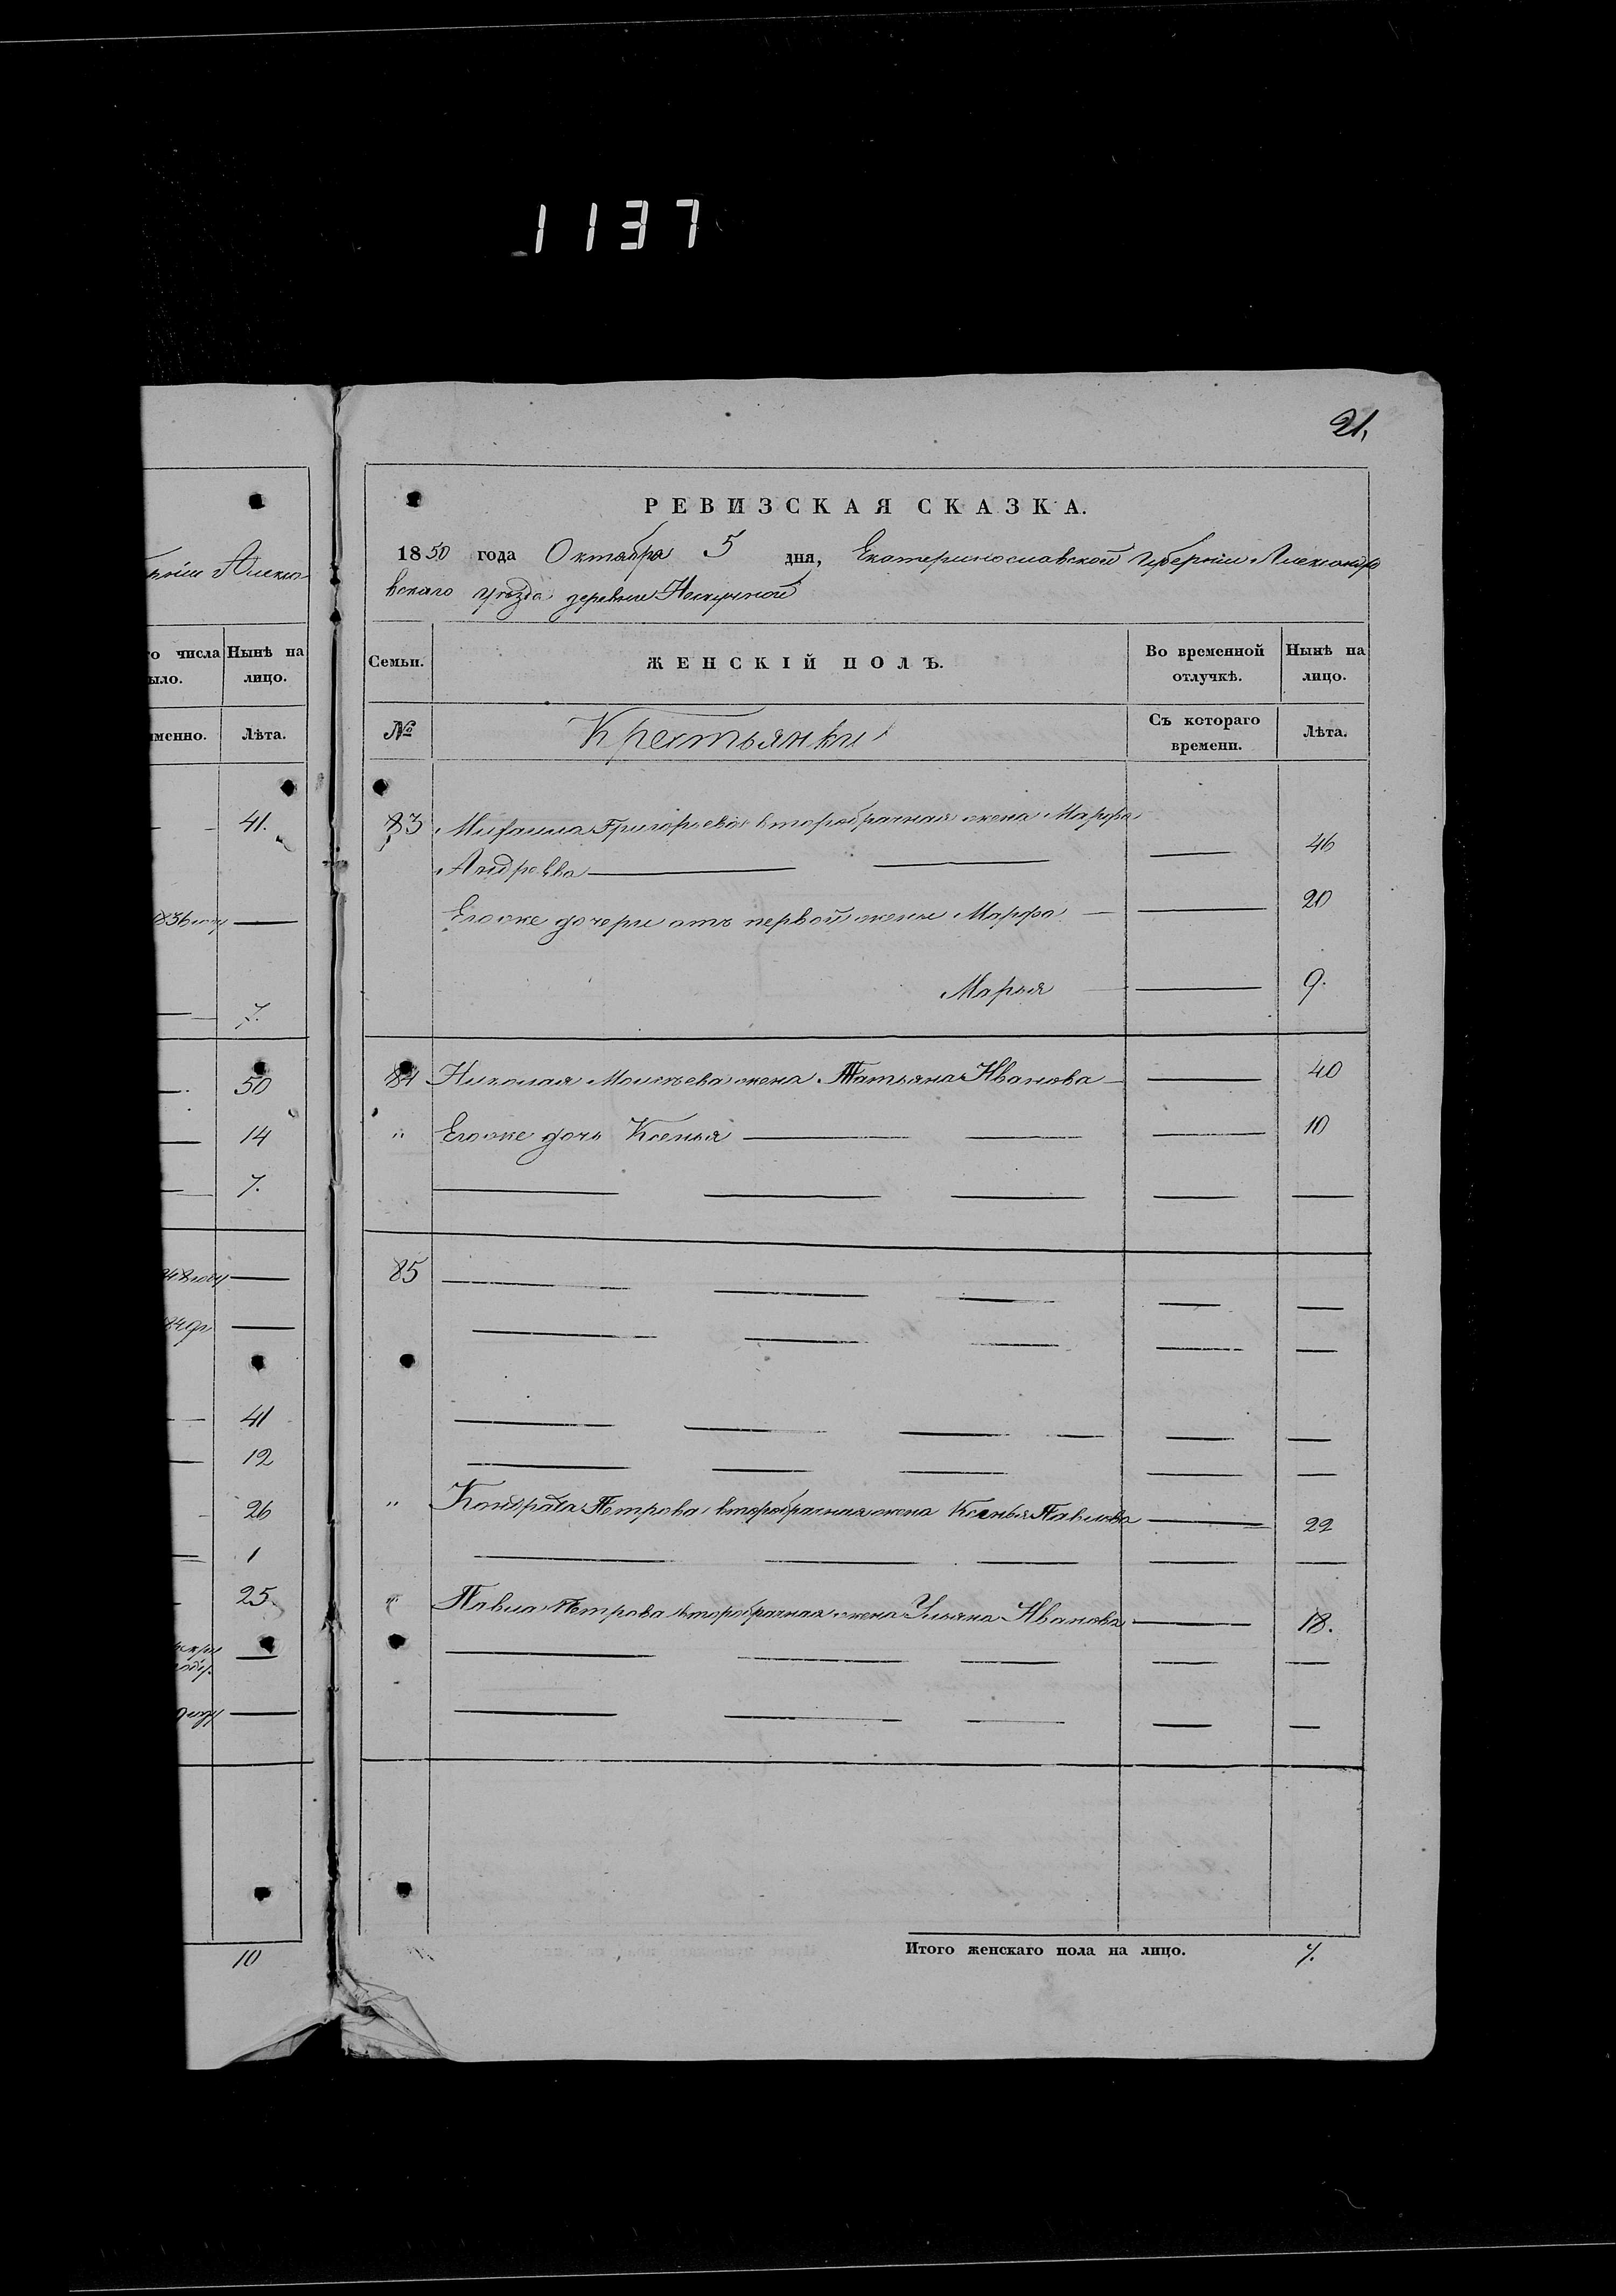 1137
21.
РЕВИЗСКАЯ СКАЗКА.
1850 года Октября 5 дня, Екатеринославской Губерніи Александро
вскаго уѣзда деревни Нескучной
Семьи.
ЖЕНСКІЙ ПОЛЪ.
Во временной отлучкѣ.
Нынѣ на лицо.
№
Крестьянки
Съ котораго времени.
Лѣта.
83 Михаила Григорьева второбрачная жена Марфа
Андреева 46
Его же дочери отъ первой жены Марфа 20
Марья 9.
84 Николая Моисѣева жена Татьяна Иванова 40
" Его же дочь Ксенья 10
85
" Кондрата Петрова второбрачная жена Ксенья Павлова 22
" Павла Петрова второбрачная жена Ульяна Иванова 18.
Итого женскаго пола на лицо. 7.
рніи Алекса
го числа
ыло.
Нынѣ на
лицо.
именно.
Лѣта.
41.
836 году
7.
50
14
7.
848 году
849 г
41
12
26
1
25.
10